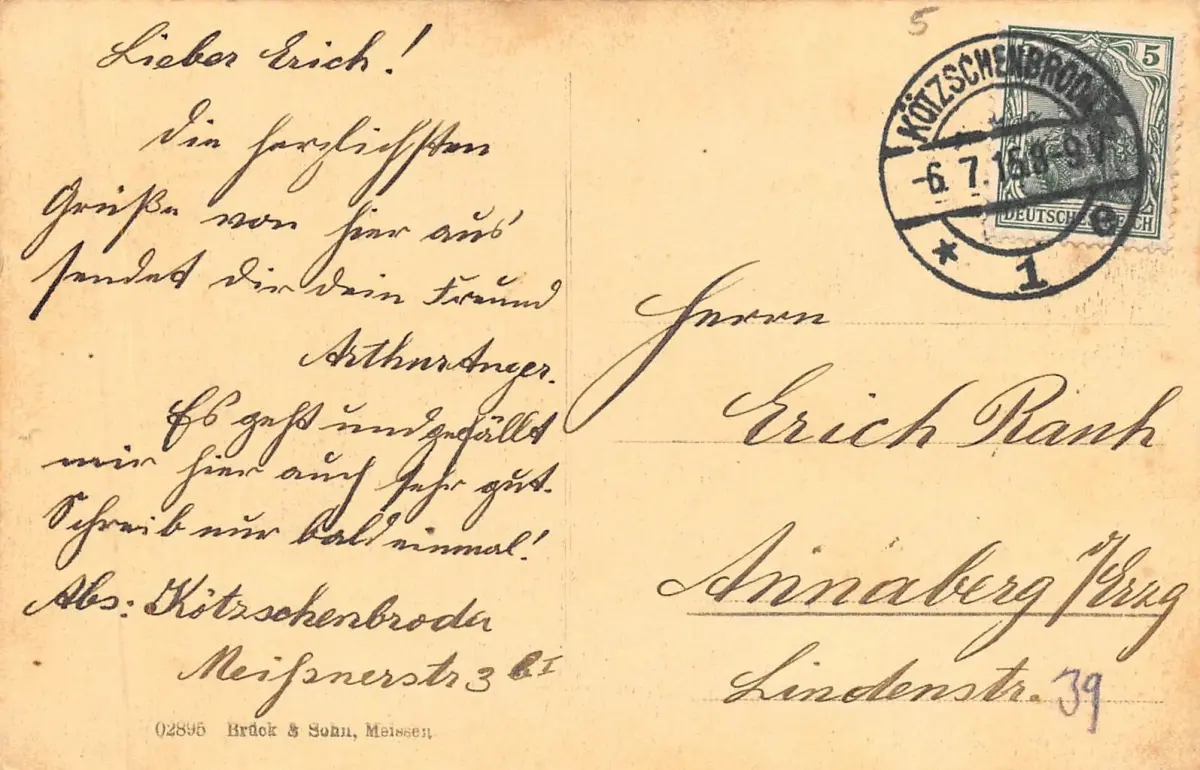 Lieber Erich!
Die herzlichsten
Grüße von hier aus
sendet Dir dein Freund
Arthur Anger.
Es geht und gefällt
mir hier auch sehr gut.
Schreib nur bald einmal!
Abs: Kötzschenbroda
Meißnerstr 3 b I
02895 Brück & Sohn, Meissen
5
KÖTZSCHENBRODA
-6.7.15.8-9V
* 1 e
5
DEUTSCHES REICH
Herrn
Erich Rauh
Annaberg i/Erzg
Lindenstr. 39